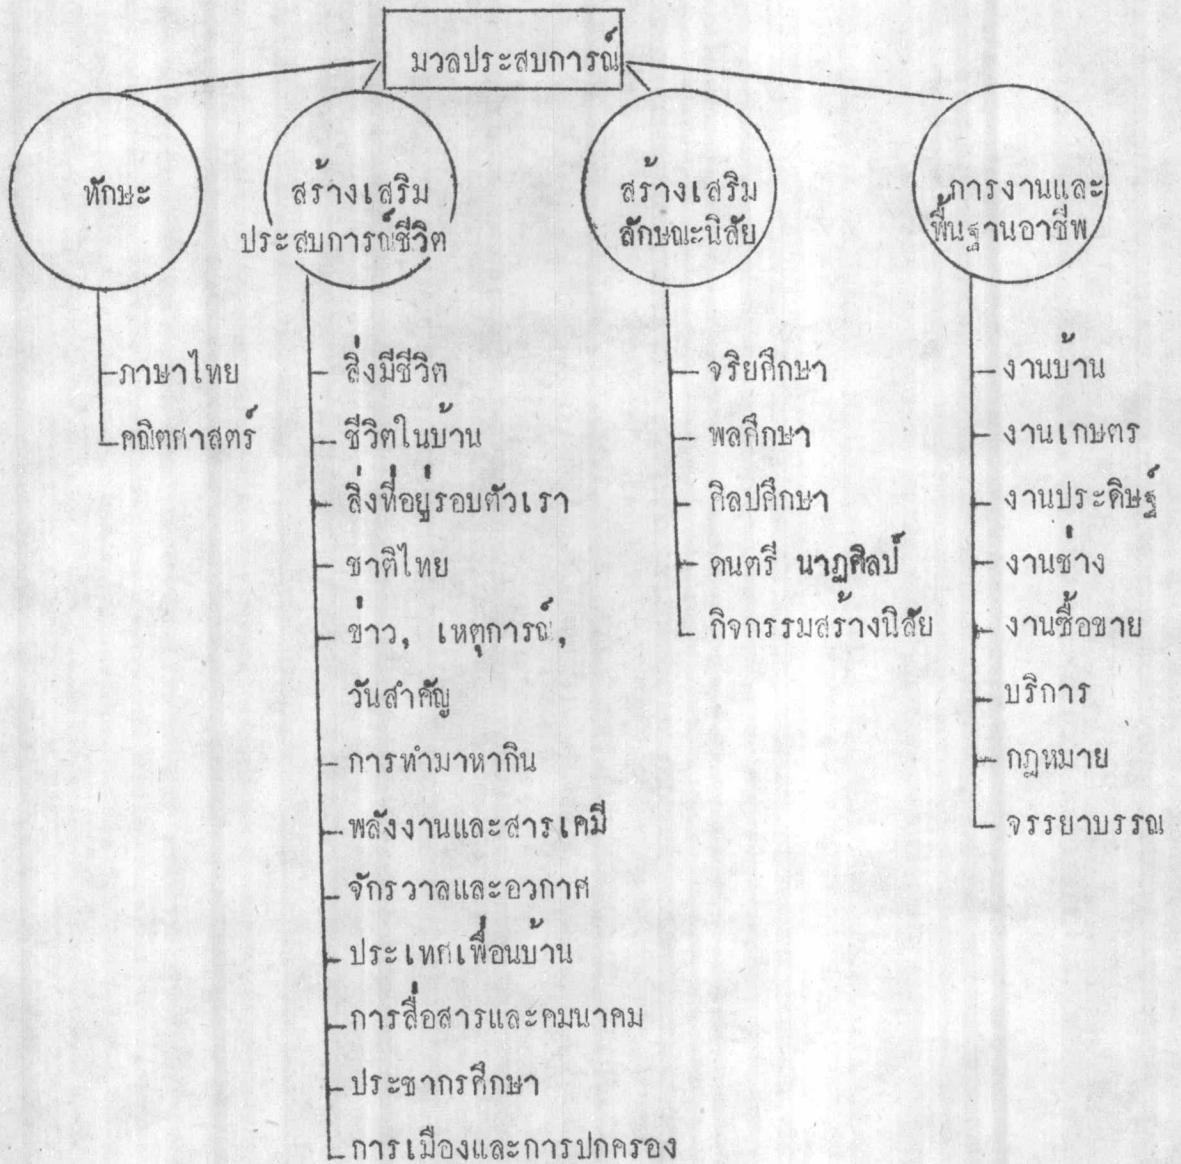 มวลประสบการณ์
ทักษะ
ภาษาไทย
คณิตศาสตร์
สร้างเสริม
ประสบการณ์ชีวิต
สิ่งมีชีวิต
ชีวิตในบ้าน
สิ่งที่อยู่รอบตัวเรา
ชาติไทย
ข่าว, เหตุการณ์,
วันสำคัญ
การทำมาหากิน
พลังงานและสารเคมี
จักรวาลและอวกาศ
ประเทศเพื่อนบ้าน
การสื่อสารและคมนาคม
ประชากรศึกษา
การเมืองและการปกครอง
สร้างเสริม
ลักษณะนิสัย
จริยศึกษา
พลศึกษา
ศิลปศึกษา
ดนตรี นาฏศิลป์
กิจกรรมสร้างนิสัย
การงานและ
พื้นฐานอาชีพ
งานบ้าน
งานเกษตร
งานประดิษฐ์
งานช่าง
งานซื้อขาย
บริการ
กฎหมาย
จรรยาบรรณ